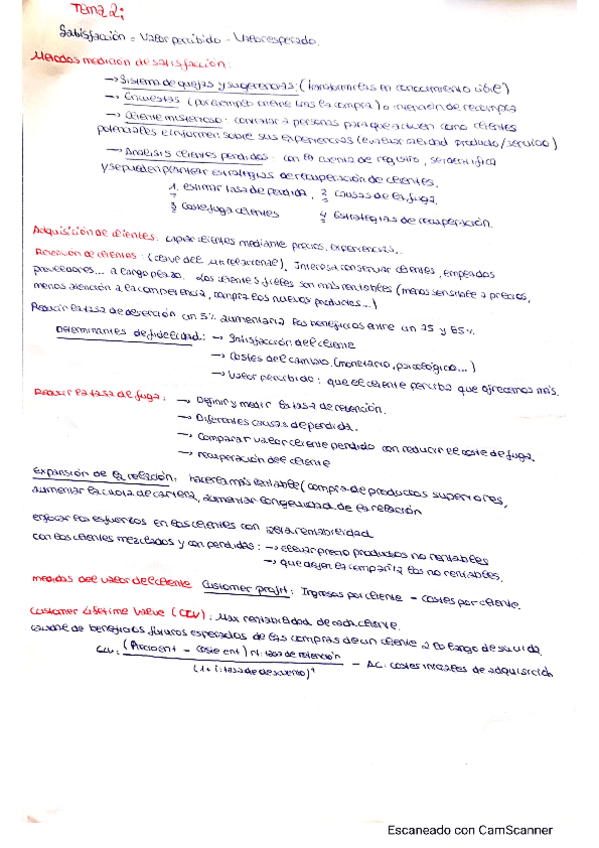 Tema 2:
Satisfacción = Valor percibido - Valor esperado.
Métodos medición de satisfacción:
→ Sistema de quejas y sugerencias: (transformarlas en conocimiento útil)
→ Encuestas (por ejemplo online tras la compra) o intención de recompra
→ Cliente misterioso: contratar a personas para que actúen como clientes
potenciales e informen sobre sus experiencias (evaluar calidad producto/servicio)
→ Análisis clientes perdidos: con la cuenta de registro, se identifica
y se pueden plantear estrategias de recuperación de clientes.
1. estimar tasa de perdida, 2 causas de la fuga,
3 Coste fuga clientes 4 Estrategias de recuperación.
Adquisición de clientes: captar clientes mediante precios, experiencias,..
Retención de clientes: (clave del relacional). Interesa conservar clientes, empleados
proveedores... a largo plazo. Los clientes fieles son más rentables (menos sensible a precios,
menos atención a la competencia, compra los nuevos productos...)
Reducir la tasa de deserción un 5% aumentaría los beneficios entre un 25 y 85%.
Determinantes de fidelidad: → Satisfacción del cliente
→ Costes del cambio. (monetario, psicológico...)
→ Valor percibido: que el cliente perciba que ofrecemos más.
Reducir la tasa de fuga: → Definir y medir la tasa de retención.
→ Diferentes causas de perdida.
→ Comparar valor cliente perdido con reducir el coste de fuga.
→ recuperación del cliente
Expansión de la relación: hacerla más rentable (compra de productos superiores,
aumentar la cuota de cartera, aumentar longevidad de la relación
enfocar los esfuerzos en los clientes con rentabilidad
con los clientes mezclados y con perdidas: → elevar precio productos no rentables
→ que dejen la compañía los no rentables.
medidas del valor del cliente Customer profit: Ingresos por cliente - costes por cliente.
Customer lifetime Value (CLV): Max rentabilidad de cada cliente.
de beneficios futuros esperados de las compras de un cliente a lo largo de su vida
CLV: (Precio en t - coste en t) rt: tasa de retención
(1+i: tasa de descuento)^t - AC: costes iniciales de adquisición
Escaneado con CamScanner